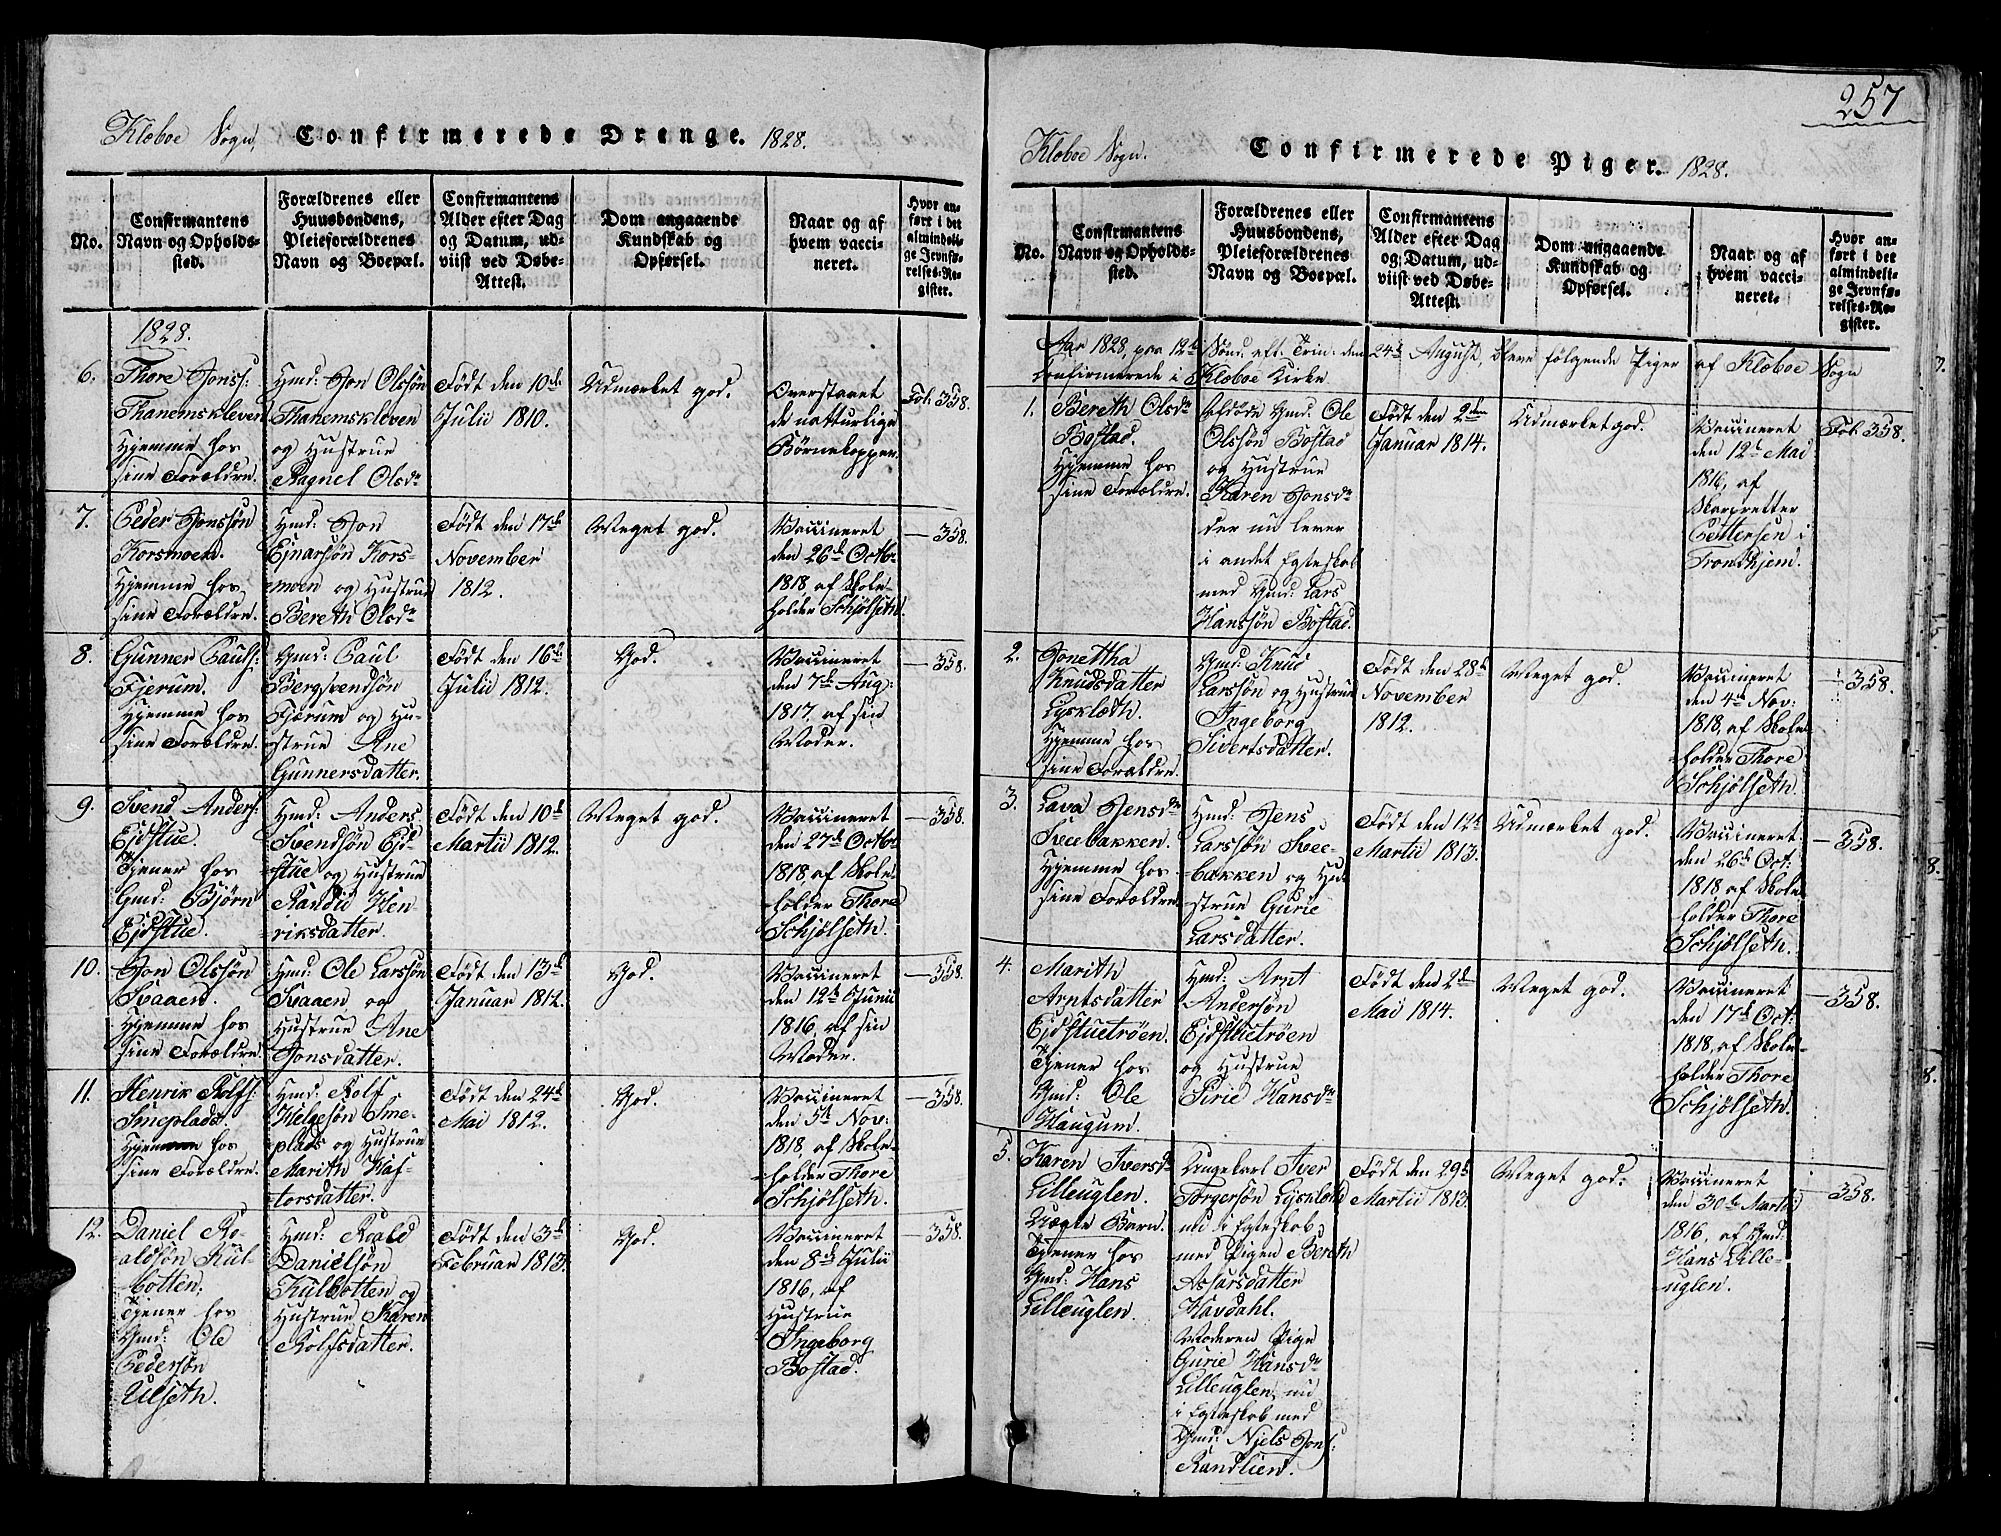 257
Klæboe Sogn, Confirmerede Drenge. 1828.
No.
Confirmantens
Navn og Opholds-
sted.
Forældrenes eller
Huusbondens,
Pleieforældrenes
Navn og Boepæl.
Confirmantens
Alder efter Dag
og Datum, ud-
viist ved Døbe-
Attest.
Dom angaaende
Kundskab og
Opførsel.
Naar og af
hvem vacci-
neret.
Hvor an-
ført i det
almindeli-
ge Jevnfø-
relses-Re-
gister.
1828.
6.
Thore Jonss:
Thanemskleven
Hjemme hos
sine Forældre.
Hmd: Jon Olssøn
Thanemskleven
og Hustrue
Ragnel Olsdr
Født den 10de
Julii 1810.
Udmærket god.
Overstaaet
de naturlige
Børnekopper.
Fol. 358.
7.
Peder Jonssøn
Korsmoen.
Hjemme hos
sine Forældre.
Hmd: Jon
Ejnarsøn Kors-
moen og Hustrue
Bereth Olsdr
Født den 17de
November
1812.
Meget god.
Vaccineret
den 26de Octbr
1818, af Skole-
holder Schjølseth.
— 358.
8.
Gunner Pauls:
Fjerum.
Hjemme hos
sine Forældre.
Gmd: Paul
Bergsvendsøn
Fjærum og Hu-
strue Ane
Gunnersdatter.
Født den 16de
Julii 1812.
God.
Vaccineret
den 7de Aug:
1817. af sin
Moder.
— 358.
9.
Svend Anders:
Ejdstue.
Tjener hos
Gmd: Bjørn
Ejdstue.
Hmd: Anders
Svendsøn Ejd-
stue og Hustrue
Randid Hen-
riksdatter.
Født den 10de
Martii 1812.
Meget god.
Vaccineret
den 27de Octbr
1818, af Skole-
holder Thore
Schjølseth.
— 358.
10.
Jon Olssøn
Svaaen.
Hjemme hos
sine Forældre.
Hmd: Ole Larssøn
Svaaen og
Hustrue Ane
Jonsdatter.
Født den 13de
Januar 1812.
God.
Vaccineret
den 12te Junii
1816, af sin
Moder.
— 358.
11.
Henrik Rolfs:
Smeplads.
Hjemme hos
sine Forældre.
Hmd: Rolf
Helgesøn Sme-
plads og Hustrue
Marith Haf-
torsdatter.
Født den 24de
Mai 1812.
God.
Vaccineret
den 5te Nov:
1818, af Skole-
holder Thore
Schjølseth.
— 358.
12.
Daniel Ro-
aldsøn Kul-
botten.
Tjener hos
Gmd: Ole
Pedersøn
Ulseth.
Hmd: Roald
Danielsøn
Kulbotten og
Hustrue Karen
Rolfsdatter.
Født den 3de
Februar 1813.
God.
Vaccineret
den 8de Julii
1816, af
Hustrue
Ingeborg
Bostad.
— 358.
Klæboe Sogn. Confirmerede Piger. 1828.
No.
Confirmantens
Navn og Opholds-
sted.
Forældrenes eller
Huusbondens,
Pleieforældrenes
Navn og Boepæl.
Confirmantens
Alder efter Dag
og Datum, ud-
viist ved Døbe-
Attest.
Dom angaaende
Kundskab og
Opførsel.
Naar og af
hvem vacci-
neret.
Hvor an-
ført i det
almindeli-
ge Jevnfø-
relses-Re-
gister.
Aar 1828, paa 12te Sønd. eft. Trin: den 24de August, bleve følgende Piger af Klæboe Sogn
confirmerede i Klæboe Kirke
1.
Bereth Olsdr
Bostad.
Hjemme hos
sine Forældre.
Afdøde Gmd: Ole
Olssøn Bostad
og Hustrue
Karen Jonsdr
der nu lever
i andet Egteskab
med Gmd: Lars
Hanssøn Bostad.
Født den 2den
Januar 1814.
Udmærket god.
Vaccineret
den 12te Mai
1816, af
Skarpretter
Pettersen i
Trondhjem.
Fol. 358.
2.
Jonettha
Knudsdatter
Lysklæth.
Hjemme hos
sine Forældre.
Gmd: Knud
Larssøn og Hustrue
Ingeborg
Sivertsdatter.
Født den 28de
November
1812.
Meget god.
Vaccineret
den 4de Nov:
1818, af Skole-
holder Thore
Schjølseth.
— 358.
3.
Lava Jensdr
Sveebakken.
Hjemme hos
sine Forældre.
Hmd: Jens
Larssøn Svee-
bakken og Hu-
strue Gurie
Larsdatter.
Født den 12te
Martii 1813.
Udmærket god.
Vaccineret
den 26de Oct:
1818 af Skole-
holder Thore
Schjølseth.
— 358.
4.
Marith
Arntsdatter
Ejdstuetrøen.
Tjener hos
Gmd: Ole
Haugum.
Hmd: Arnt
Andersøn
Ejdstuetrøen
og Hustrue
Sirie Hansdr
Født den 2de
Mai 1814.
Meget god.
Vaccineret
den 17de Oct:
1818, af Skole-
holder Thore
Schjølseth.
— 358.
5.
Karen Iversdr
Lilleuglen.
Uægte Barn.
Tjener hos
Gmd: Hans
Lilleuglen.
Ungekarl Iver
Torgersøn Lysklæth
nu i Egteskab
med Pigen Bereth
Assarsdatter
Havdahl.
Moderen Pige
Gurie Hansdr
Lilleuglen, nu
i Egteskab med
Gmd: Njels Jons:
Randlien.
Født den 29de
Martii 1813.
Meget god.
Vaccineret
den 30te Martii
1816, af Gmd:
Hans Lille-
uglen.
— 358.